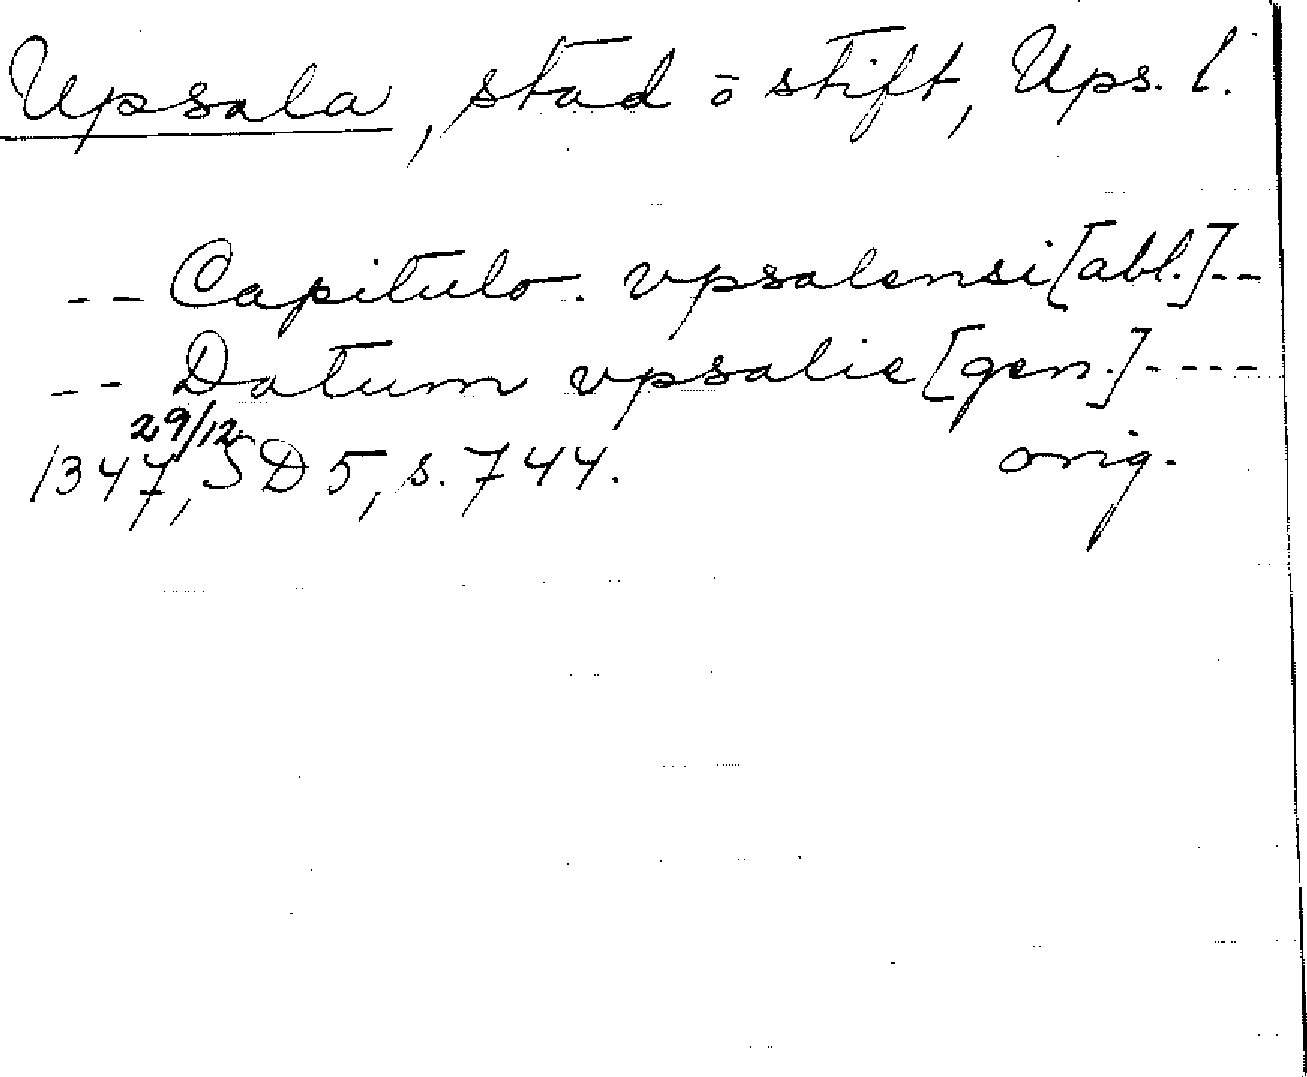 Upsala, stad o stift, Ups. l.
-- Capitulo. vpsalensi [abl.] --
-- Datum vpsalie [gen.] ----
29/12
1347, SD 5, s. 744. orig.